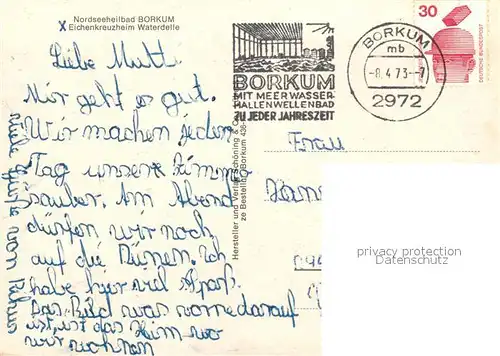 Nordseeheilbad BORKUM
X Eichenkreuzheim Waterdelle
Liebe Mutti.
Mir geht es gut.
Wir machen jeden
Tag unsere Zimmer
sauber. Am Abend
dürfen wir noch
auf die Dünen. Ich
habe hier viel Spaß.
Das Bild was vorne darauf
ist, ist das Heim wo
wir wohnen
viele Grüße von
Hersteller und Verlag Schöning & C
ze Bestellnr. Borkum 436
BORKUM
MIT MEERWASSER-
HALLENWELLENBAD
ZU JEDER JAHRESZEIT
BORKUM
mb
-8.4.73.-7
2972
30
DEUTSCHE BUNDESPOST
Frau
privacy protection
Datenschutz